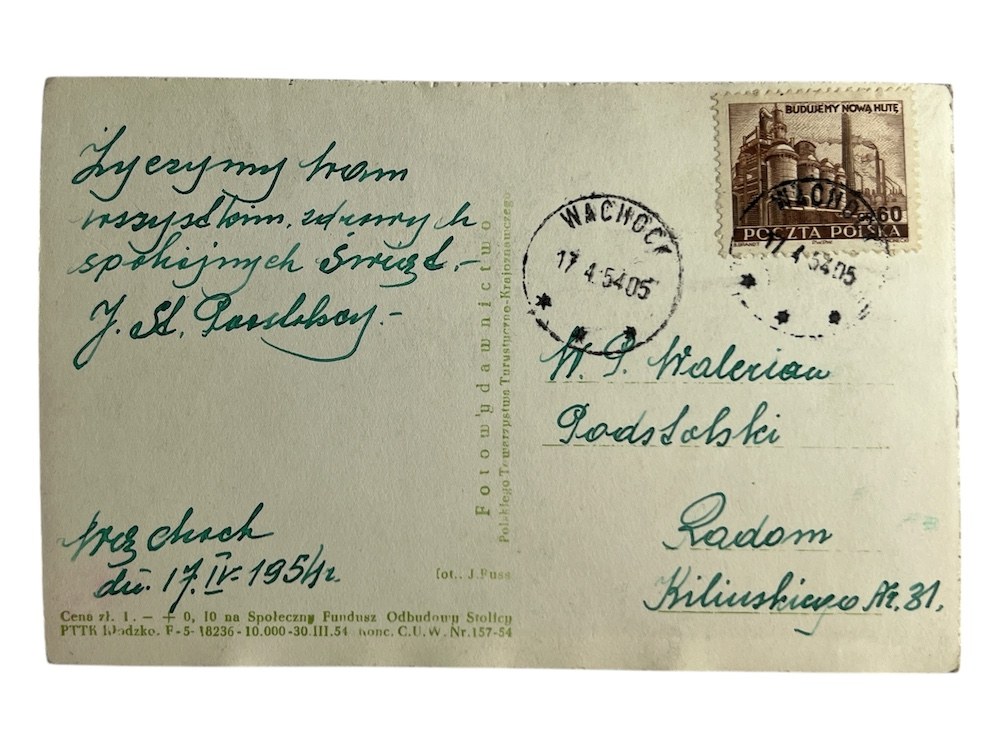 Życzymy Wam
wszystkim, zdrowych
spokojnych Świąt.-
J. St.
Wąchock
dn. 17.IV-1954r.
Cena zł. 1.— + 0, 10 na Społeczny Fundusz Odbudowy Stolicy
PTTK Kłodzko. F-5-18236-10.000-30.III.54 Konc. C.U.W. Nr.157-54
Fotowydawnictwo
Polskiego Towarzystwa Turystyczno-Krajoznawczego
fot. J.
BUDUJEMY NOWĄ HUTĘ
60
POCZTA POLSKA
WĄCHOCK
17 4.54 05
WĄCHOCK
17 4.54 05
W. P. Walerian
Podstolski
Radom
Kilińskiego Nr. 31.